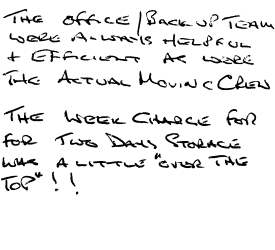 THE OFFICE/BACK UP TEAM
WERE ALWAYS HELPFUL
+ EFFICIENT AS WERE
THE ACTUAL MOVING CREW
THE WEEK CHARGE FOR
FOR TWO DAYS STORAGE
WAS A LITTLE "OVER THE
TOP"!!